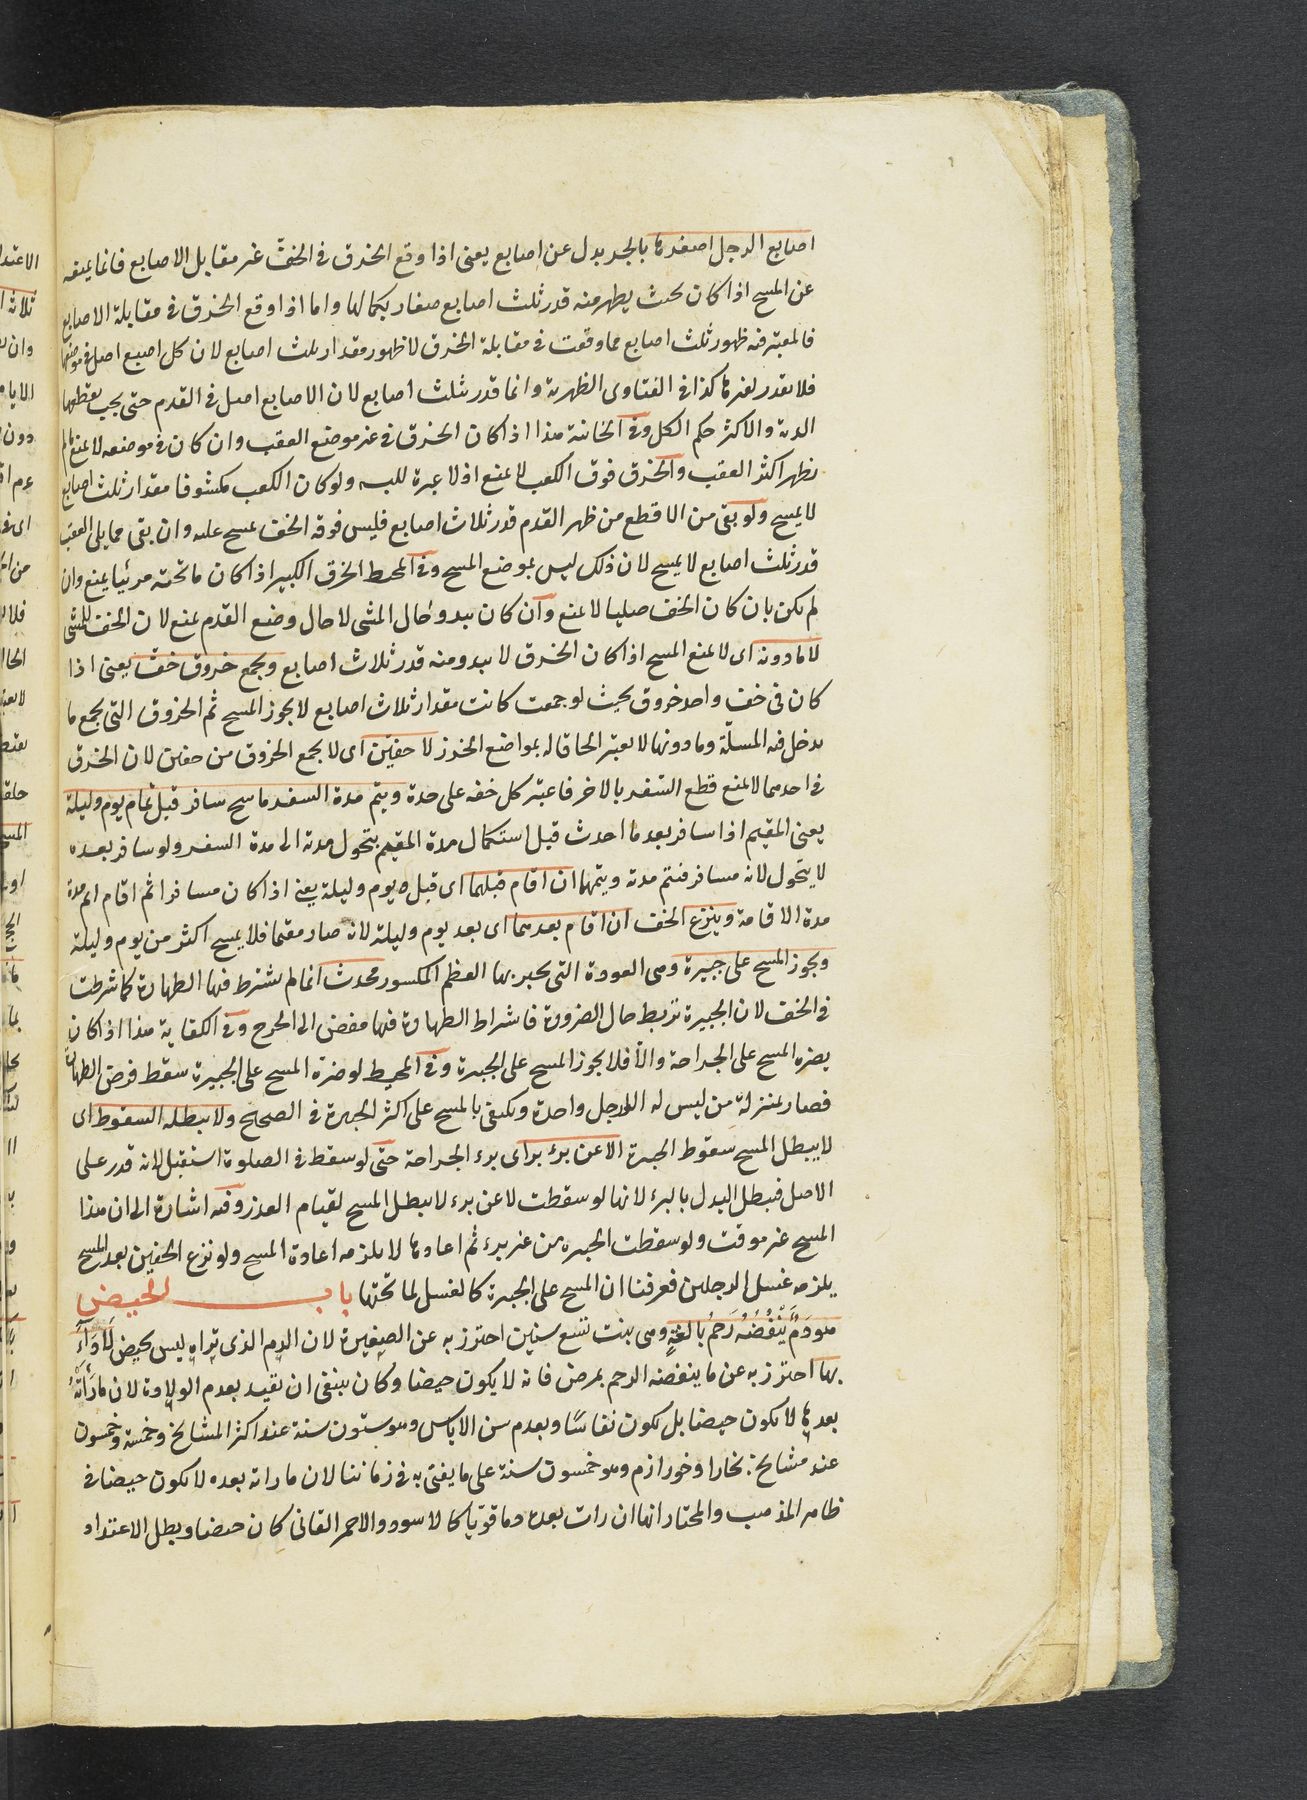 اصابع الرجل اصغرها بالجر بدل عن اصابع يعنى اذا وقع الخرق فى الخفّ غير مقابل الاصابع فانما يمنعه
عن المسح اذا كان بحيث يظهر منه قدر ثلث اصابع صغار بكمالها واما اذا وقع الخرق فى مقابلة الاصابع
فالمعتبر فيه ظهور ثلث اصابع مما وقعت فى مقابلة الخرق لا ظهور مقدار ثلث اصابع لان كل اصبع اصل فى موضعها
فلا يقدر بغيرها كذا فى الفتاوى الظهيرية وانما قدر بثلث اصابع لان الاصابع اصل فى القدم حتى يجب بقطعها
الدية والاكثر حكم الكل وفى الخانية هذا اذا كان الخرق فى غير موضع العقب وان كان فى موضعه لا يمنع ما لم
يظهر اكثر العقب والخرق فوق الكعب لا يمنع اذ لا عبرة للبسه ولو كان الكعب مكشوفا مقدار ثلث اصابع
لا يمسح ولو بقى من الاقطع من ظهر القدم قدر ثلاث اصابع فليس فوقه الخف يمسح عليه وان بقى مما يلى العقب
قدر ثلث اصابع لا يمسح لان ذلك ليس بموضع المسح وفى المحيط الخرق الكبير اذا كان ما تحته مرئيا يمنع وان
لم يكن بان كان الخف صلبا لا يمنع وان كان يبدو حال المشى لا حال وضع القدم يمنع لان الخف للمشى
لا ما دونه اى لا يمنع المسح اذا كان الخرق لا يبدو منه قدر ثلاث اصابع ويجمع خروق خفّ يعنى اذا
كان فى خف واحد خروق بحيث لو جمعت كانت مقدار ثلاث اصابع لا يجوز المسح ثم الخروق التى يجمع ما
يدخل فيه المسلّة وما دونها لا يعتبر الحاقا له بمواضع الخرز لا خفين اى لا يجمع الخروق من خفين لان الخرق
فى احدهما لا يمنع قطع السّفر بالاخر فاعتبر كل خف على حدة ويتم مدة السفر ماسح سافر قبل تمام يوم وليلة
يعنى المقيم اذا سافر بعد ما احدث قبل استكمال مدة المقيم يتحول مدته الى مدة السفر ولو سافر بعده
لا يتحول لانه مسافر فيتم مدته ويتمهما ان اقام قبلهما اى قبل يوم وليلة يعنى اذا كان مسافرا ثم اقام اتم مدته
مدة الاقامة وينزع الخف ان اقام بعدهما اى بعد يوم وليلة لانه صار مقيما فلا يمسح اكثر من يوم وليلة
ويجوز المسح على جبيرة وهى العودة التى يجبر بها العظم المكسور محدث انما لم يشترط فيها الطهارة كما شرطت
فى الخف لان الجبيرة تربط حال الضرورة فاشراط الطهارة فيها مفض الى الحرج وفى الكفاية هذا اذا كان
يضره المسح على الجراحة والّا فلا يجوز المسح على الجبيرة وفى المحيط لو ضره المسح على الجبيرة سقط فرض الطهارة
فصار بمنزلة من ليس له الا رجل واحدة ويكتفى بالمسح على اكثر الجبيرة فى الصحيح ولا يبطله السقوط اى
لا يبطل المسح سقوط الجبيرة الا عن برء براى برء الجراحة حتى لو سقط فى الصلوة استقبل لانه قدر على
الاصل فبطل البدل بالبرء لانها لو سقطت لا عن برء لا يبطل المسح لقيام العذر وفيه اشارة الى ان هذا
المسح غير موقت ولو سقطت الجبيرة من غير برء ثم اعادها لا يلزمه اعادة المسح ولو نزع الخفين بعد المسح
يلزمه غسل الرجلين فعرفنا ان المسح على الجبيرة كالغسل لما تحتها باب الحيض
هو دَمٌ يَنْفُضُهُ رَحِمُ بالغةٍ وهى بنت تسع سنين احترز به عن الصغيرة لان الدم الذى تراه ليس بحيض لَا دَاءَ
بها احترز به عن ما ينفضه الرحم بمرض فانه لا يكون حيضا وكان ينبغى ان يقيد بعدم الولادة لان ما رَأَتْهُ
بعدها لا يكون حيضا بل يكون نفاسًا وبعدم سن الاياس وهو ستون سنة عند اكثر المشايخ وخمسة وخمسون
عند مشايخ بخارا وخورازم وهو خمسون سنة على ما يفتى به فى زماننا لان ما راته بعده لا يكون حيضا فى
ظاهر المذهب والمختار انها ان رات بعده دما قويّا كالاسود والاحمر القانى كان حيضا ويبطل الاعتداد